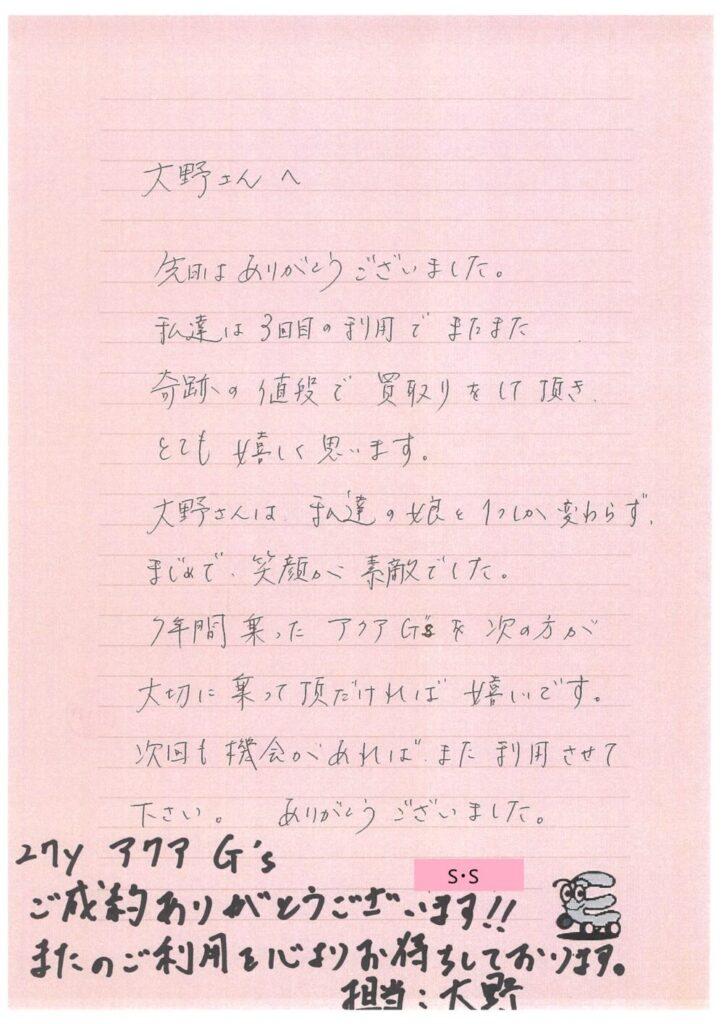 大野さんへ
先日はありがとうございました。
私達は3回目の利用でまたまた
奇跡の値段で買取りをして頂き、
とても嬉しく思います。
大野さんは、私達の娘と1つしか変わらず、
まじめで、笑顔が素敵でした。
7年間乗ったアクアG'sを次の方が
大切に乗って頂だければ嬉いです。
次回も機会があれば、また利用させて
下さい。 ありがとうございました。
27y アクア G's
S・S
ご成約ありがとうございます!!
またのご利用を心よりお待ちしております。
担当：大野